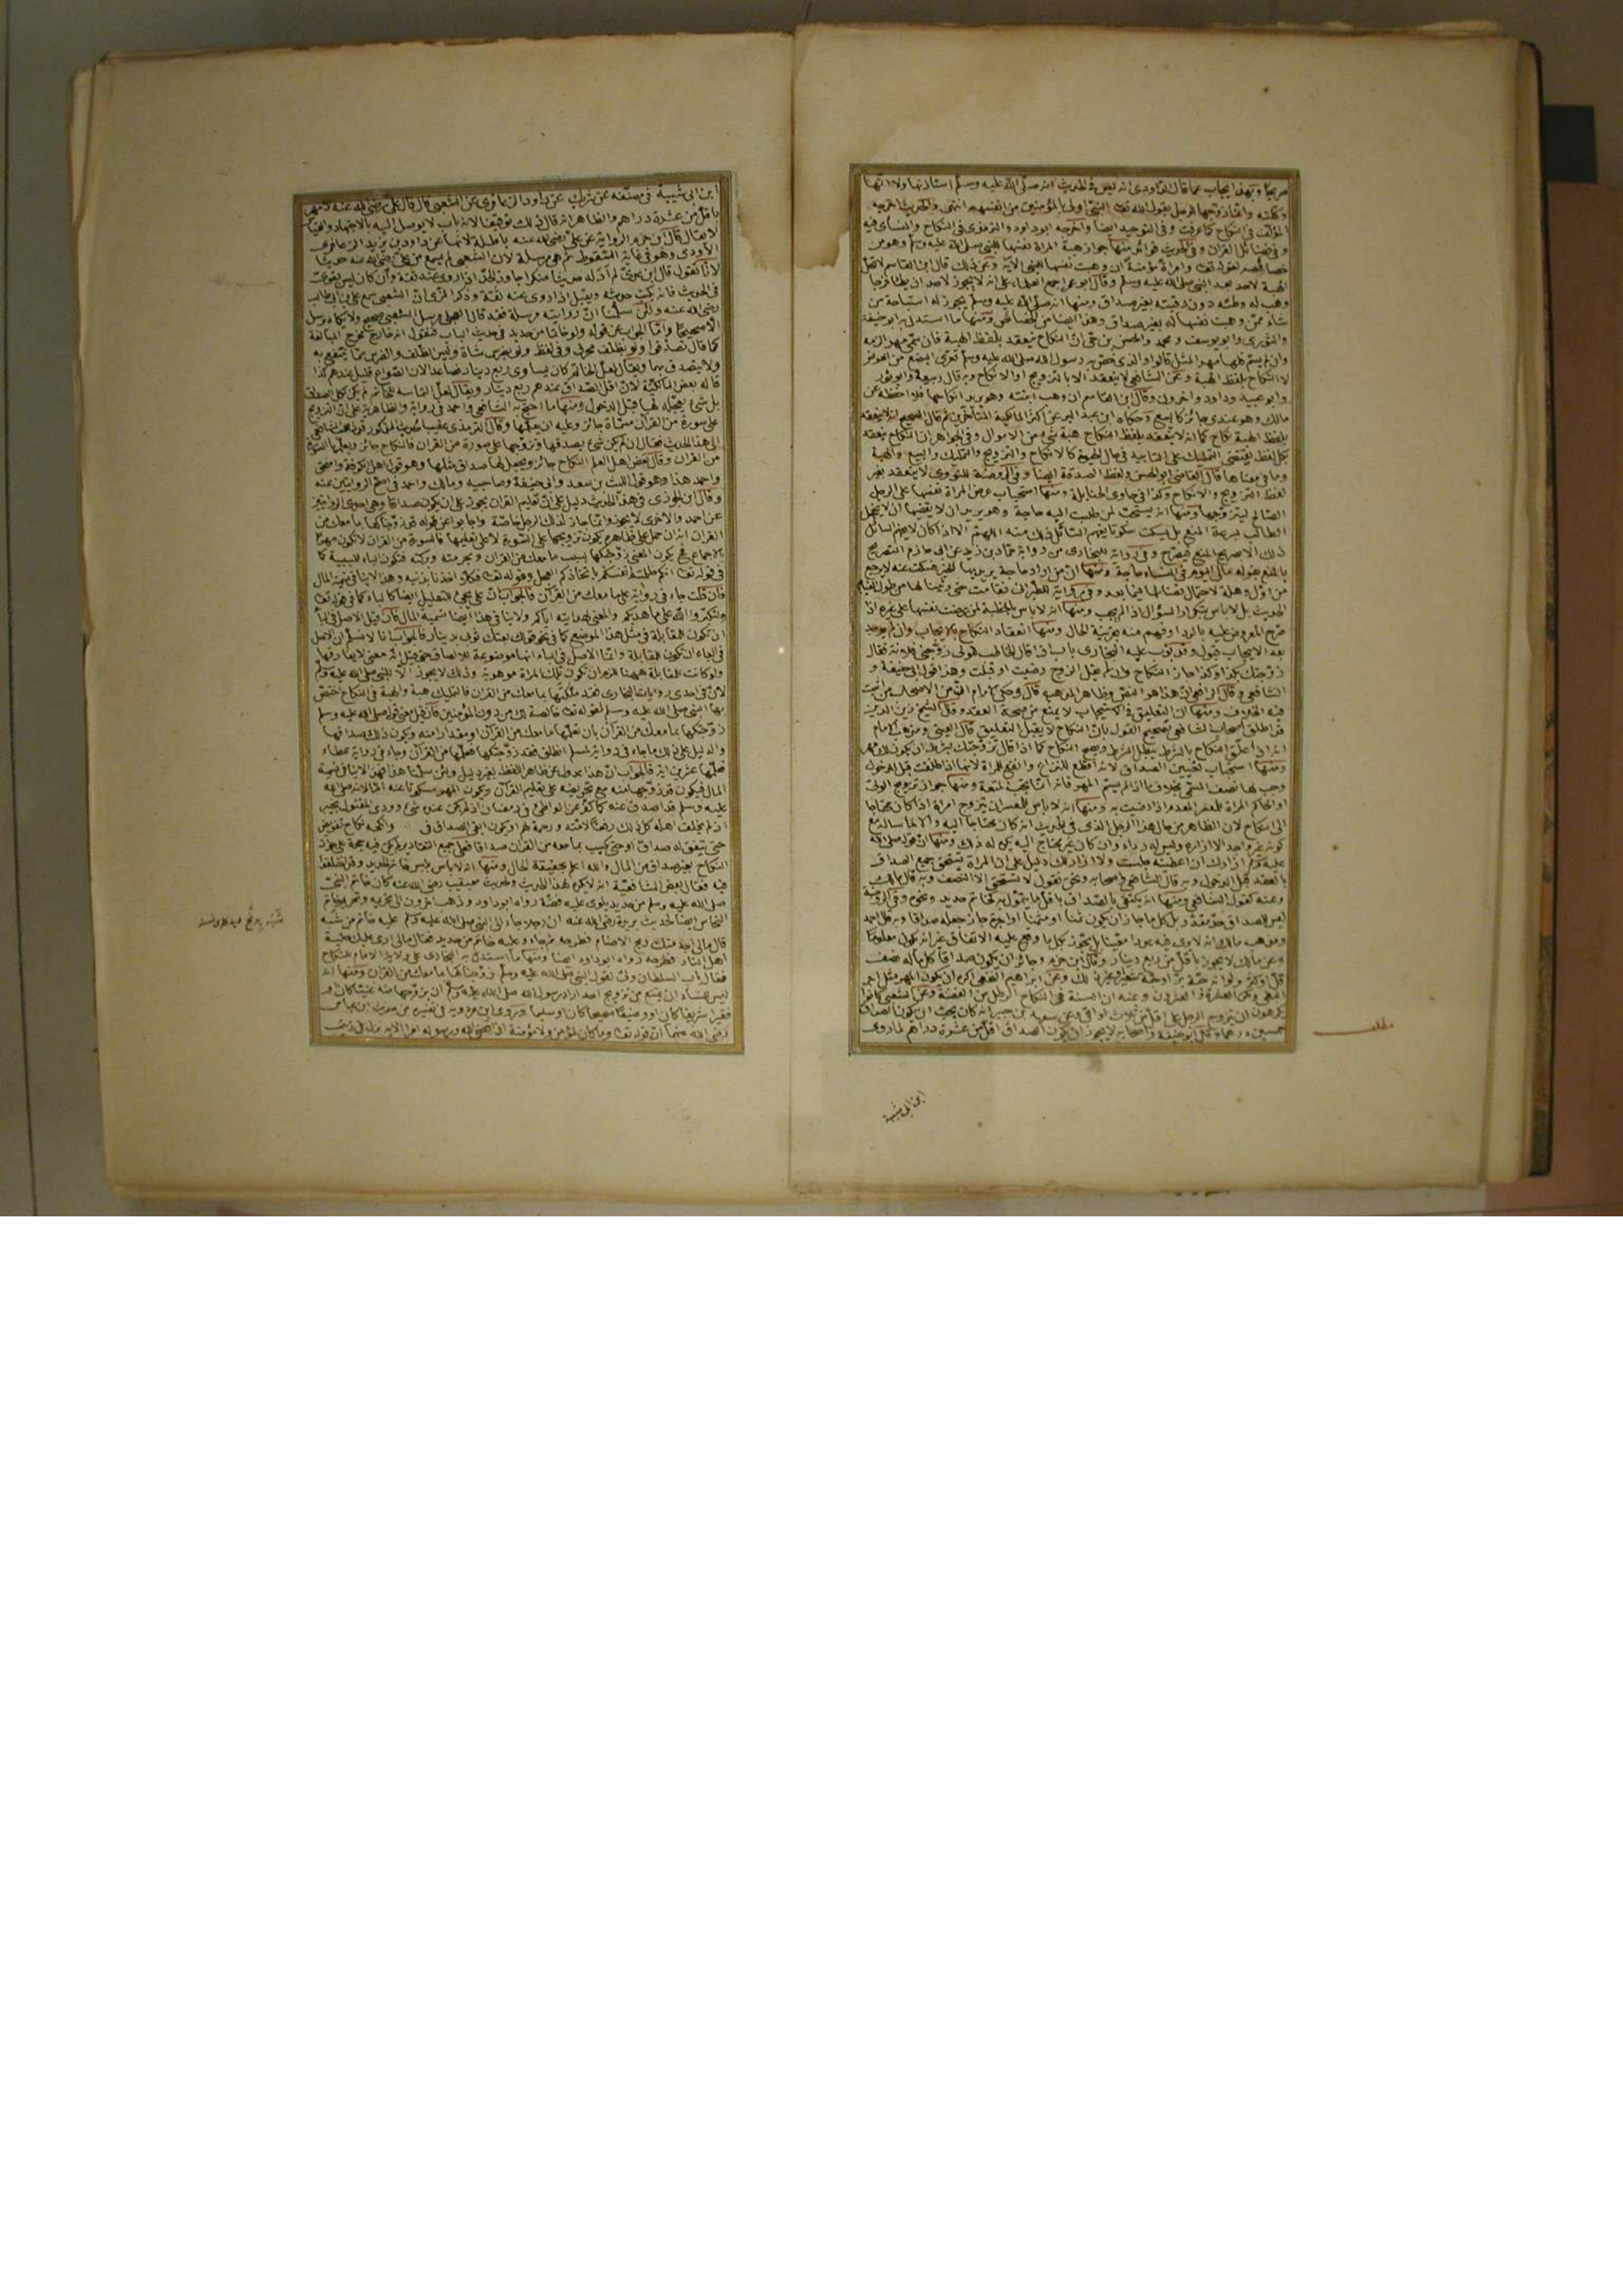 صريحا وبهذا يجاب عما قال الداودى انه ليس فى الحديث انه صلى الله عليه وسلم استاذنها ولا انها
وكلته وانما زوجها للرجل بقول الله تعالى النبى اولى بالمؤمنين من انفسهم انتهى والحديث اخرجه
المؤلف فى النكاح كما عرفت وفى التوحيد ايضا واخرجه ابو داود والترمذى فى النكاح والنسائى فيه
وفى فضائل القران وفى الحديث فوائد منها جواز هبة المراة نفسها للنبى صلى الله عليه وسلم وهو من
خصائصه لقوله تعالى وامراة مؤمنة ان وهبت نفسها للنبى الاية وعن ذلك قال ابن القاسم لا تحل
الهبة لاحد بعد النبى صلى الله عليه وسلم وقال ابو عمر اجمع العلماء على انه لا يجوز لاحد ان يطا فرجا
وهب له وطئه دون رقبته بغير صداق ومنها انه صلى الله عليه وسلم يجوز له استباحة من
شاء ممن وهبت نفسها له بغير صداق وهذا ايضا من الخصائص ومنها ما استدل به ابو حنيفة
والثورى وابو يوسف ومحمد والحسن بن حى ان النكاح ينعقد بلفظ الهبة فان سمى مهرا لزمه
وان لم يسم فلها مهر المثل قالوا والذى خص به رسول الله صلى الله عليه وسلم تعرى البضع من العوض
لا النكاح بلفظ الهبة وعن الشافعى لا ينعقد الا بالتزويج او الانكاح وبه قال ربيعة وابو ثور
وابو عبيد وداود واخرون وقال ابن القاسم ان وهب ابنته وهو يريد انكاحها فلا احفظه عن
مالك وهو عندى جائز كالبيع وحكاه ابن عبد البر عن اكثر المالكية المتاخرين ثم قال الصحيح انه لا ينعقد
بلفظ الهبة نكاح كما انه لا ينعقد بلفظ النكاح هبة شىء من الاموال وفى الجواهر ان النكاح ينعقد
بكل لفظ يقتضى التمليك على التابيد فى حال الحيوة كالانكاح والتزويج والتمليك والبيع والهبة
وما فى معناها قال القاضى ابو الحسن ولفظ الصدقة ايضا وفى الروضة للنووى لا ينعقد بغير
لفظ التزويج والانكاح وكذا فى حاوى الحنابلة ومنها استحباب عرض المراة نفسها على الرجل
الصالح ليتزوجها ومنها انه يستحب لمن طلب اليه حاجة وهو يريد ان لا يقضيها ان لا يخجل
الطالب بسرعة المنع بل يسكت سكوتا يفهم السائل ذلك منه اللهم الا اذا كان لا يفهم السائل
ذلك الا بصريح المنع فيصرح وفى رواية للبخارى من رواية حماد بن زيد عن ابى حازم التصريح
بالمنع بقوله مالى اليوم فى النساء حاجة ومنها ان من اراد حاجة يريد بها الخير فسكت عنه لا يرجع
من اول وهلة لاحتمال قضائها فيما بعد وفى رواية للطبرانى فقامت حتى رثينا لها من طول القيام
الحديث بل لا باس بتكرار السؤال اذا لم يجب ومنها انه لا باس بالخطبة لمن عرضت نفسها على غيره اذا
صرح المعروض عليه بالرد او فهم منه بقرينة الحال ومنها انعقاد النكاح بالايجاب وان لم يوجد
بعد الايجاب قبول وقد بوب عليه البخارى باب اذا قال الخاطب للولى زوجنى فلانة فقال
زوجتك بكذا وكذا جاز النكاح وان لم يقل للزوج رضيت او قبلت وهذا قول ابى حنيفة و
الشافعى وقال الرافعى ان هذا هو النص وظاهر المذهب قال وحكى الامام ان من الاصحاب من اثبت
فيه الخلاف ومنها ان التعليق فى الاستيجاب لا يمنع من صحة العقد وقال الشيخ زين الدين
قد اطلق اصحاب الشافعى تصحيح القول بان النكاح لا يقبل التعليق قال العينى ومذهب الامام
انه اذا علق النكاح بالشرط يبطل الشرط ويصح النكاح كما اذا قال تزوجتك بشرط ان يكون لك مهر
ومنها استحباب تعيين الصداق لانه اقطع للنزاع وانفع للمراة لانها اذا طلقت قبل الدخول
وجب لها نصف المسمى بخلاف ما اذا لم يسم المهر فانه انما يجب المتعة ومنها جواز تزويج الولى
او الحاكم المراة للمعسر المعدم اذا رضيت به ومنها انه لا باس للمعسر ان يتزوج امراة اذا كان محتاجا
الى النكاح لان الظاهر من حال هذا الرجل الذى فى الحديث انه كان محتاجا اليه والا لما ساله مع
كونه غير واجد الا ازاره وليس له رداء وان كان غير محتاج اليه يكره له ذلك ومنها ان قوله صلى الله
عليه وسلم ازارك ان اعطيته جلست ولا ازار لك دليل على ان المراة تستحق جميع الصداق
بالعقد قبل الدخول وبه قال الشافعى واصحابه ونحن نقول لا تستحق الا النصف وبه قال مالك
وعنه كقول الشافعى ومنها انه يكتفى بالصداق باقل ما يتمول به كخاتم حديد ونحوه وفى الروضة
ليس للصداق حد مقدر بل كل ما جاز ان يكون ثمنا او مثمنا او اجرة جاز جعله صداقا وبه قال احمد
ومذهب مالك انه لا يرى فيه عددا معينا بل يجوز بكل ما وقع عليه الاتفاق غير انه يكون معلوما
وعن مالك لا يجوز باقل من ربع دينار وقال ابن حزم وجائز ان يكون صداقا كل ما له نصف
قل او كثر ولو انه حبة بر او حبة شعير وغير ذلك وعن ابراهيم النخعى اكره ان يكون المهر مثل اجر
البغى ولكن العشرة والعشرون وعنه ان السنة فى النكاح الرطل من الفضة وعن الشعبى كانوا
يكرهون ان يتزوج الرجل على اقل من ثلاث اواقى وعن سعيد بن جبير انه كان يحب ان يكون الصداق
خمسين درهما وقال ابو حنيفة واصحابه لا يجوز ان يكون الصداق اقل من عشرة دراهم لما روى
مطلب
ابن ابى شيبة
ابن ابى شيبة فى مصنفه عن شريك عن داود الزعافرى عن الشعبى قال قال على رضى الله عنه لا مهر
باقل من عشرة دراهم والظاهر انه قال ذلك توقيفا لانه باب لا يوصل اليه بالاجتهاد والقياس
لا يقال قال ابن حزم الرواية عن على رضى الله عنه باطلة لانها عن داود بن يزيد الزعافرى
الاودى وهو فى غاية السقوط ثم هى مرسلة لان الشعبى لم يسمع من على رضى الله عنه حديثا
لانا نقول قال ابن عدى لم ار له حديثا منكرا جاوز الحد اذا روى عنه ثقة وان كان ليس بقوى
فى الحديث فانه يكتب حديثه ويقبل اذا روى عنه ثقة وذكر المزى ان الشعبى سمع على بن ابى طالب
رضى الله عنه ولئن سلمنا ان روايته مرسلة فقد قال العجلى مرسل الشعبى صحيح ولا يكاد يرسل
الا صحيحا واما الجواب عن قوله ولو خاتما من حديد فى حديث الباب فنقول انه خارج مخرج المبالغة
كما قال تصدقوا ولو بظلف محرق وفى لفظ ولو بفرسن شاة وليس الظلف والفرسن مما ينتفع به
ولا يتصدق بهما ويقال لعل الخاتم كان يساوى ربع دينار فصاعدا لان الصواغ قليل عندهم كذا
قاله بعض المالكية لان اقل الصداق عندهم ربع دينار ويقال لعل التماسه للخاتم لم يكن كل الصداق
بل شىء يعجله لها قبل الدخول ومنها ما احتج به الشافعى واحمد فى رواية والظاهرية على ان التزويج
على سورة من القران مسماة جائز وعليه ان يعلمها وقال الترمذى عقيب الحديث المذكور قد ذهب الشافعى
الى هذا الحديث فقال ان لم يكن شىء يصدقها وتزوجها على سورة من القران فالنكاح جائز ويعلمها السورة
من القران وقال بعض اهل العلم النكاح جائز ويجعل لها صداق مثلها وهو قول اهل الكوفة واسحق
واحمد هذا وهو قول الليث بن سعد وابى حنيفة وصاحبيه ومالك واحمد فى اصح الروايتين عنه
وقال ابن الجوزى فى هذا الحديث دليل على ان تعليم القران يجوز على ان يكون صداقا وهى احدى الروايتين
عن احمد والاخرى لا يجوز وانما جاز لذلك الرجل خاصة واجابوا عن قوله قد زوجناكها بما معك من
القران انه ان حمل على ظاهره يكون تزويجها على السورة لا على تعليمها فالسورة من القران لا تكون مهرا
بالاجماع فح يكون المعنى زوجتكها بسبب ما معك من القران وبحرمته وبركته فتكون الباء للسببية كما
فى قوله تعالى انكم ظلمتم انفسكم باتخاذكم العجل وقوله تعالى فكلا اخذنا بذنبه وهذا لا ينافى تسمية المال
فان قلت جاء فى رواية على ما معك من القران فالجواب ان على يجئ للتعليل ايضا كالباء كما فى قوله تعالى
ولتكبروا الله على ما هديكم والمعنى لهدايته اياكم ولا ينافى هذا ايضا تسمية المال فان قيل الاصل فى الباء
ان تكون للمقابلة فى مثل هذا الموضع كما فى نحو قولك بعتك ثوبى بدينار فالجواب انا لا نسلم ان الاصل
فى الباء ان تكون للمقابلة وانما الاصل فى الباء انها موضوعة للالصاق حتى قيل انه معنى لا يفارقها
ولو كانت للمقابلة ههنا لزم ان تكون تلك المراة موهوبة وذلك لا يجوز الا للنبى صلى الله عليه وسلم
لان فى احدى روايات البخارى فقد ملكتها بما معك من القران فالتمليك هبة والهبة فى النكاح اختص
بها النبى صلى الله عليه وسلم لقوله تعالى خالصة لك من دون المؤمنين فان قيل معنى قوله صلى الله عليه وسلم
زوجتكها بما معك من القران بان تعلمها ما معك من القران او مقدارا منه ويكون ذلك صداقها
والدليل على ذلك ما جاء فى رواية لمسلم انطلق فقد زوجتكها فعلمها من القران وجاء فى رواية عطاء
فعلمها عشرين اية فالجواب ان هذا عدول عن ظاهر اللفظ بغير دليل ولئن سلمنا هذا فهذا لا ينافى تسمية
المال فيكون قد زوجها منه مع تحريضه على تعليم القران ويكون المهر مسكوتا عنه اما لانه صلى الله
عليه وسلم قد اصدق عنه كما كفر عن الواطئ فى رمضان اذ لم يكن عنده شىء وودى المقتول بخيبر
اذ لم يحلف اهله كل ذلك رفقا لامته ورحمة لهم او يكون ابقى الصداق فى وانكحه نكاح تفويض
حتى يتفق له صداق او حتى يكسب بما معه من القران صداقا فعلى جميع التقادير لم يكن فيه حجة على جواز
النكاح بغير صداق من المال والله اعلم بحقيقة الحال ومنها انه لا باس بلبس خاتم الحديد وقد اختلفوا
فيه فقال بعض الشافعية انه لا يكره لهذا الحديث ولحديث معيقيب رضى الله عنه كان خاتم النبى
صلى الله عليه وسلم من حديد ملوى عليه فضة رواه ابو داود وذهب اخرون الى تحريمه وتحريم خاتم
النحاس ايضا لحديث بريدة رضى الله عنه ان رجلا جاء الى النبى صلى الله عليه وسلم عليه خاتم من شبه
قال مالى اجد منك ريح الاصنام فطرحه ثم جاء وعليه خاتم من حديد فقال مالى ارى عليك حلية
اهل النار فطرحه رواه ابو داود ايضا ومنها ما استدل به البخارى على ولاية الامام للنكاح
فقال باب السلطان ولى لقول النبى صلى الله عليه وسلم زوجناكها بما معك من القران ومنها انه
ليس للنساء ان يمتنع من تزويج احد اراد رسول الله صلى الله عليه وسلم ان يزوجها منه غنيا كان او
فقيرا شريفا كان او وضيعا صحيحا كان او سقيما وروى ابن مردويه فى تفسيره من حديث ابن عباس
رضى الله عنهما ان قوله تعالى وما كان لمؤمن ولا مؤمنة اذا قضى الله ورسوله امرا الاية نزل فى زينب